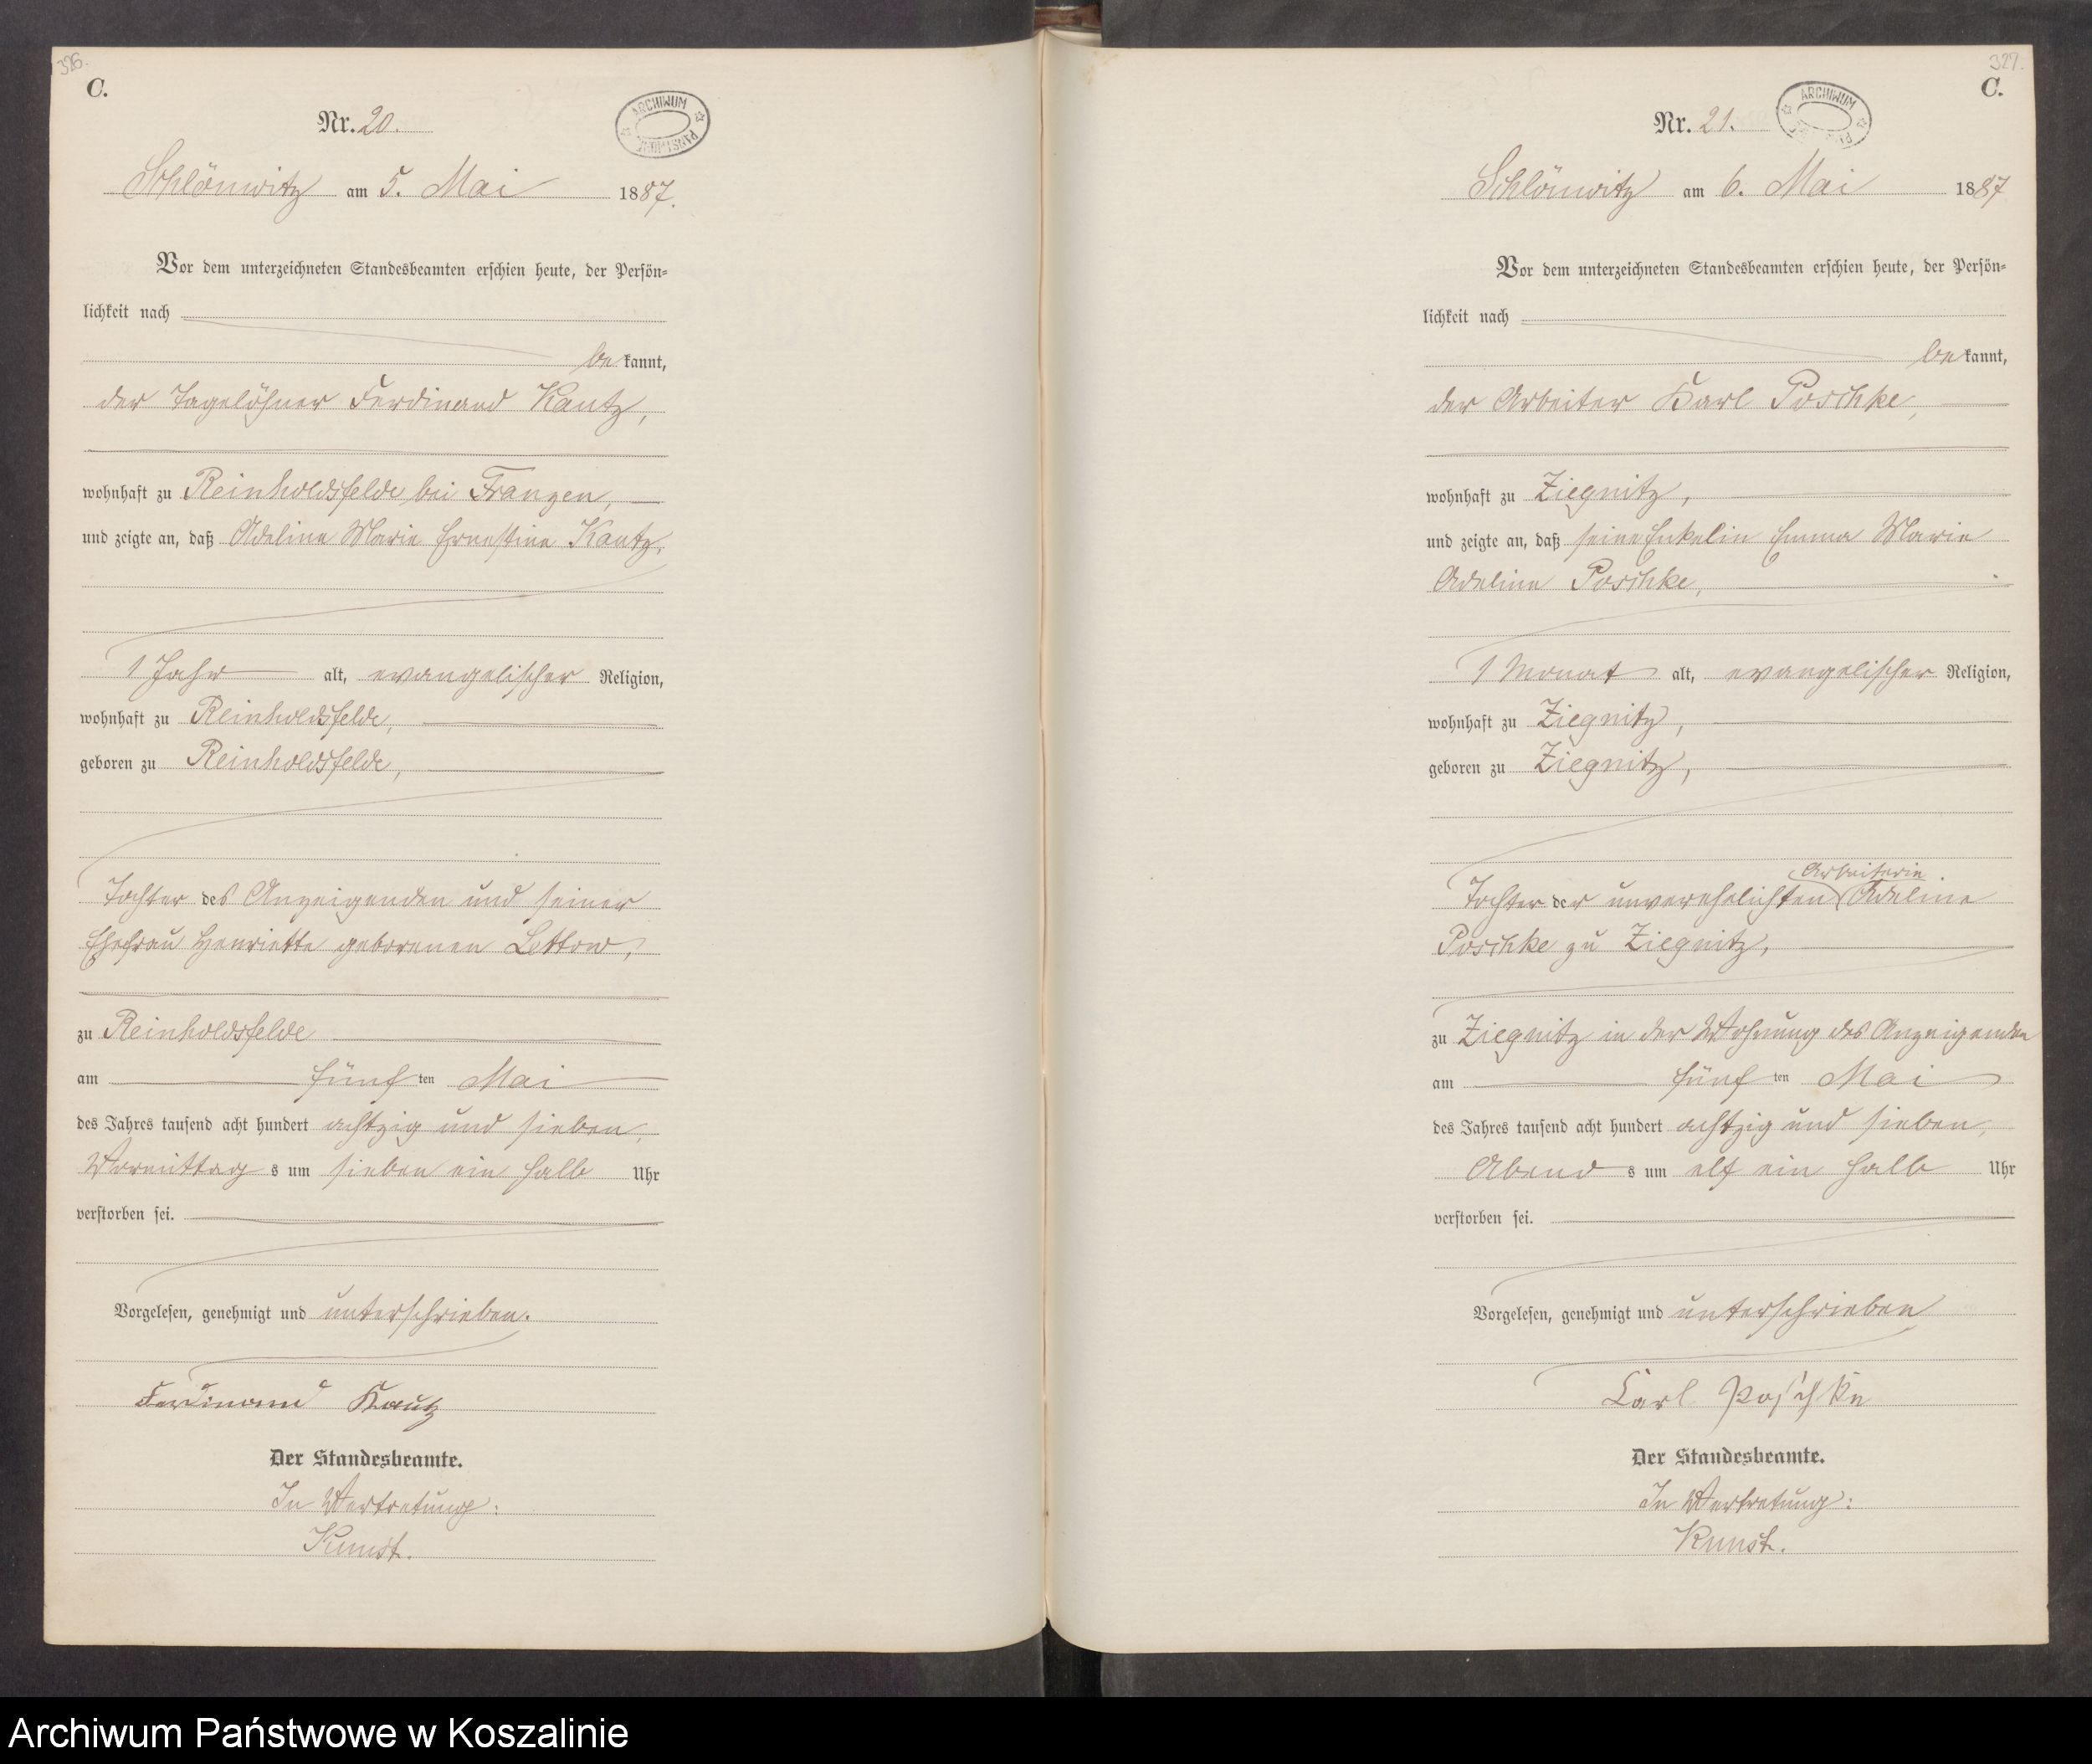 326.
C.
Nr. 20.
ARCHIWUM PAŃSTWOWE
Schlönwitz am 5. Mai 1887.
Vor dem unterzeichneten Standesbeamten erschien heute, der Persön=
lichkeit nach
bekannt,
der Tagelöhner Ferdinand Kautz,
wohnhaft zu Reinholdsfelde bei Franzen,
und zeigte an, daß Adeline Marie Ernestine Kautz,
1 Jahr alt, evangelischer Religion,
wohnhaft zu Reinholdsfelde,
geboren zu Reinholdsfelde,
Tochter des Anzeigenden und seiner
Ehefrau Henriette geborenen Lettow,
zu Reinholdsfelde
am fünften Mai
des Jahres tausend acht hundert achtzig und sieben,
Vormittags um sieben ein halb Uhr
verstorben sei.
Vorgelesen, genehmigt und unterschrieben.
Ferdinand Kautz
Der Standesbeamte.
In Vertretung:
Kunst.
327.
C.
Nr. 21.
ARCHIWUM
Schlönwitz am 6. Mai 1887
Vor dem unterzeichneten Standesbeamten erschien heute, der Persön=
lichkeit nach
bekannt,
der Arbeiter Karl Poschke,
wohnhaft zu Ziegnitz,
und zeigte an, daß seine Enkelin Emma Marie
Adeline Poschke,
1 Monat alt, evangelischer Religion,
wohnhaft zu Ziegnitz,
geboren zu Ziegnitz,
Arbeiterin
Tochter der unverehelichten Adeline
Poschke zu Ziegnitz,
zu Ziegnitz in der Wohnung des Anzeigenden
am fünften Mai
des Jahres tausend acht hundert achtzig und sieben,
Abends um elf ein halb Uhr
verstorben sei.
Vorgelesen, genehmigt und unterschrieben
Carl Poschke
Der Standesbeamte.
In Vertretung:
Kunst.
Archiwum Państwowe w Koszalinie